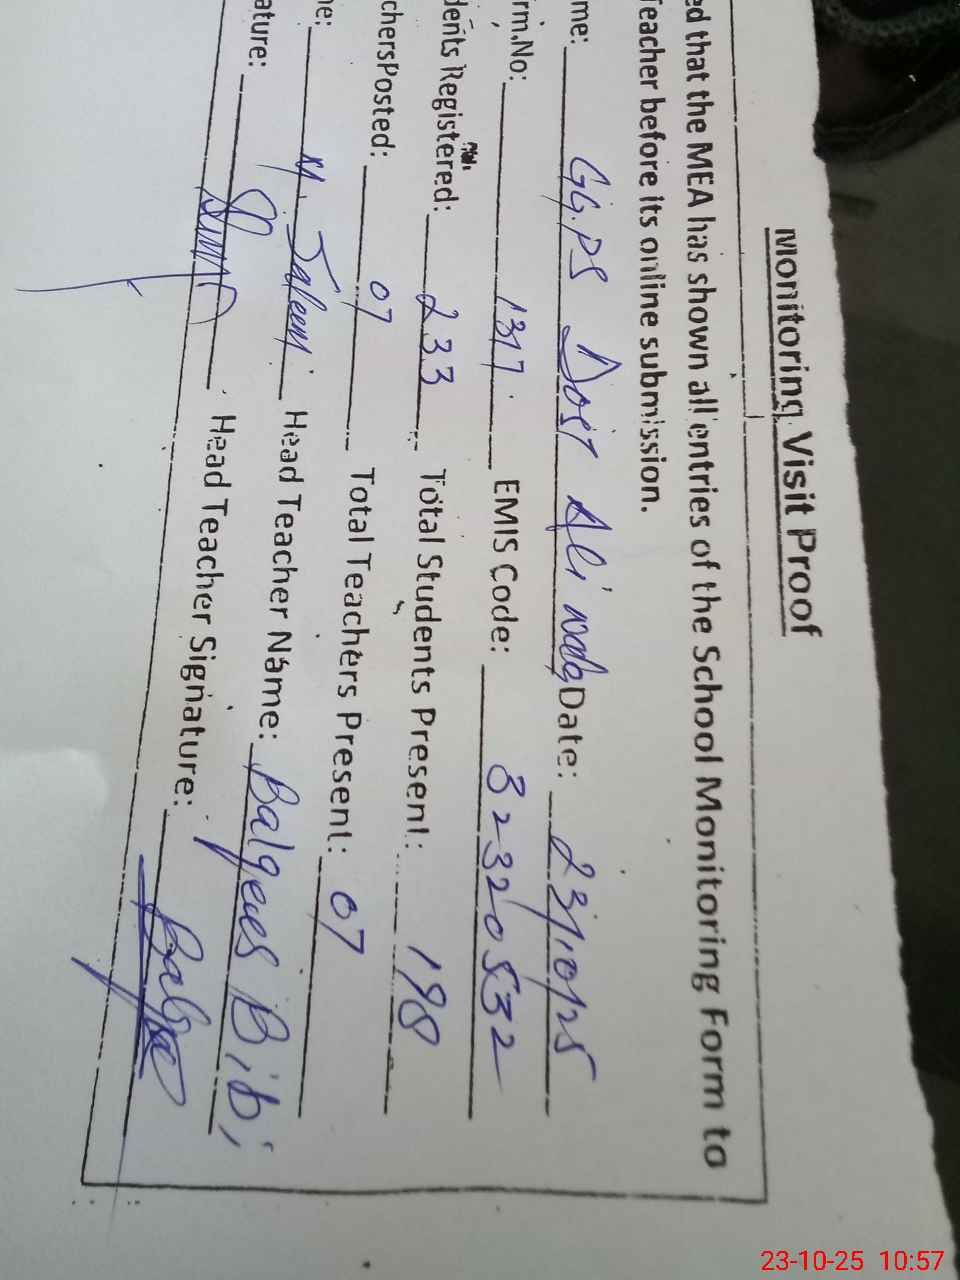 Monitoring Visit Proof
ed that the MEA has shown all entries of the School Monitoring Form to
Teacher before its online submission.
me: GG.PS Dost Ali wala Date: 23/10/25
rm.No: 1317. EMIS Code: 32320532
dents Registered: 233 Total Students Present: 198
chersPosted: 07 Total Teachers Present: 07
ne: M. Saleem Head Teacher Name: Balqees Bibi
ature: Head Teacher Signature:
23-10-25 10:57